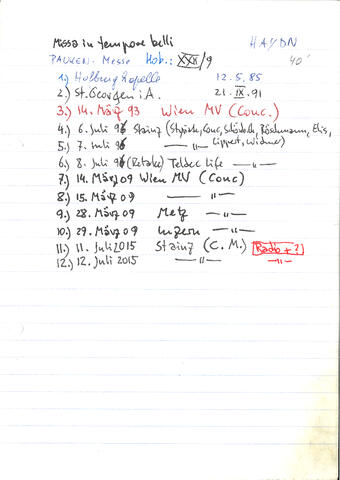 Missa in tempore belli HAYDN
PAUKEN-Messe Hob.: XXII/9 40'
1.) Hofburg Kapelle 12.5.85
2.) St. Georgen i.A. 21.IX.91
3.) 14. März 93 Wien MV (Conc.)
4.) 6. Juli 96 Stainz (Styriarte, Conc, Röschmann, Elis,
5.) 7. Juli 96 —"— Lippert, Widmer)
6.) 8. Juli 96 (Retake) Teldec Life —"—
7.) 14. März 09 Wien MV (Conc)
8.) 15. März 09 —"—
9.) 28. März 09 Metz —"—
10.) 29. März 09 Luzern —"—
11.) 11. Juli 2015 Stainz (C.M.) Radio + ?
12.) 12. Juli 2015 —"— —"—